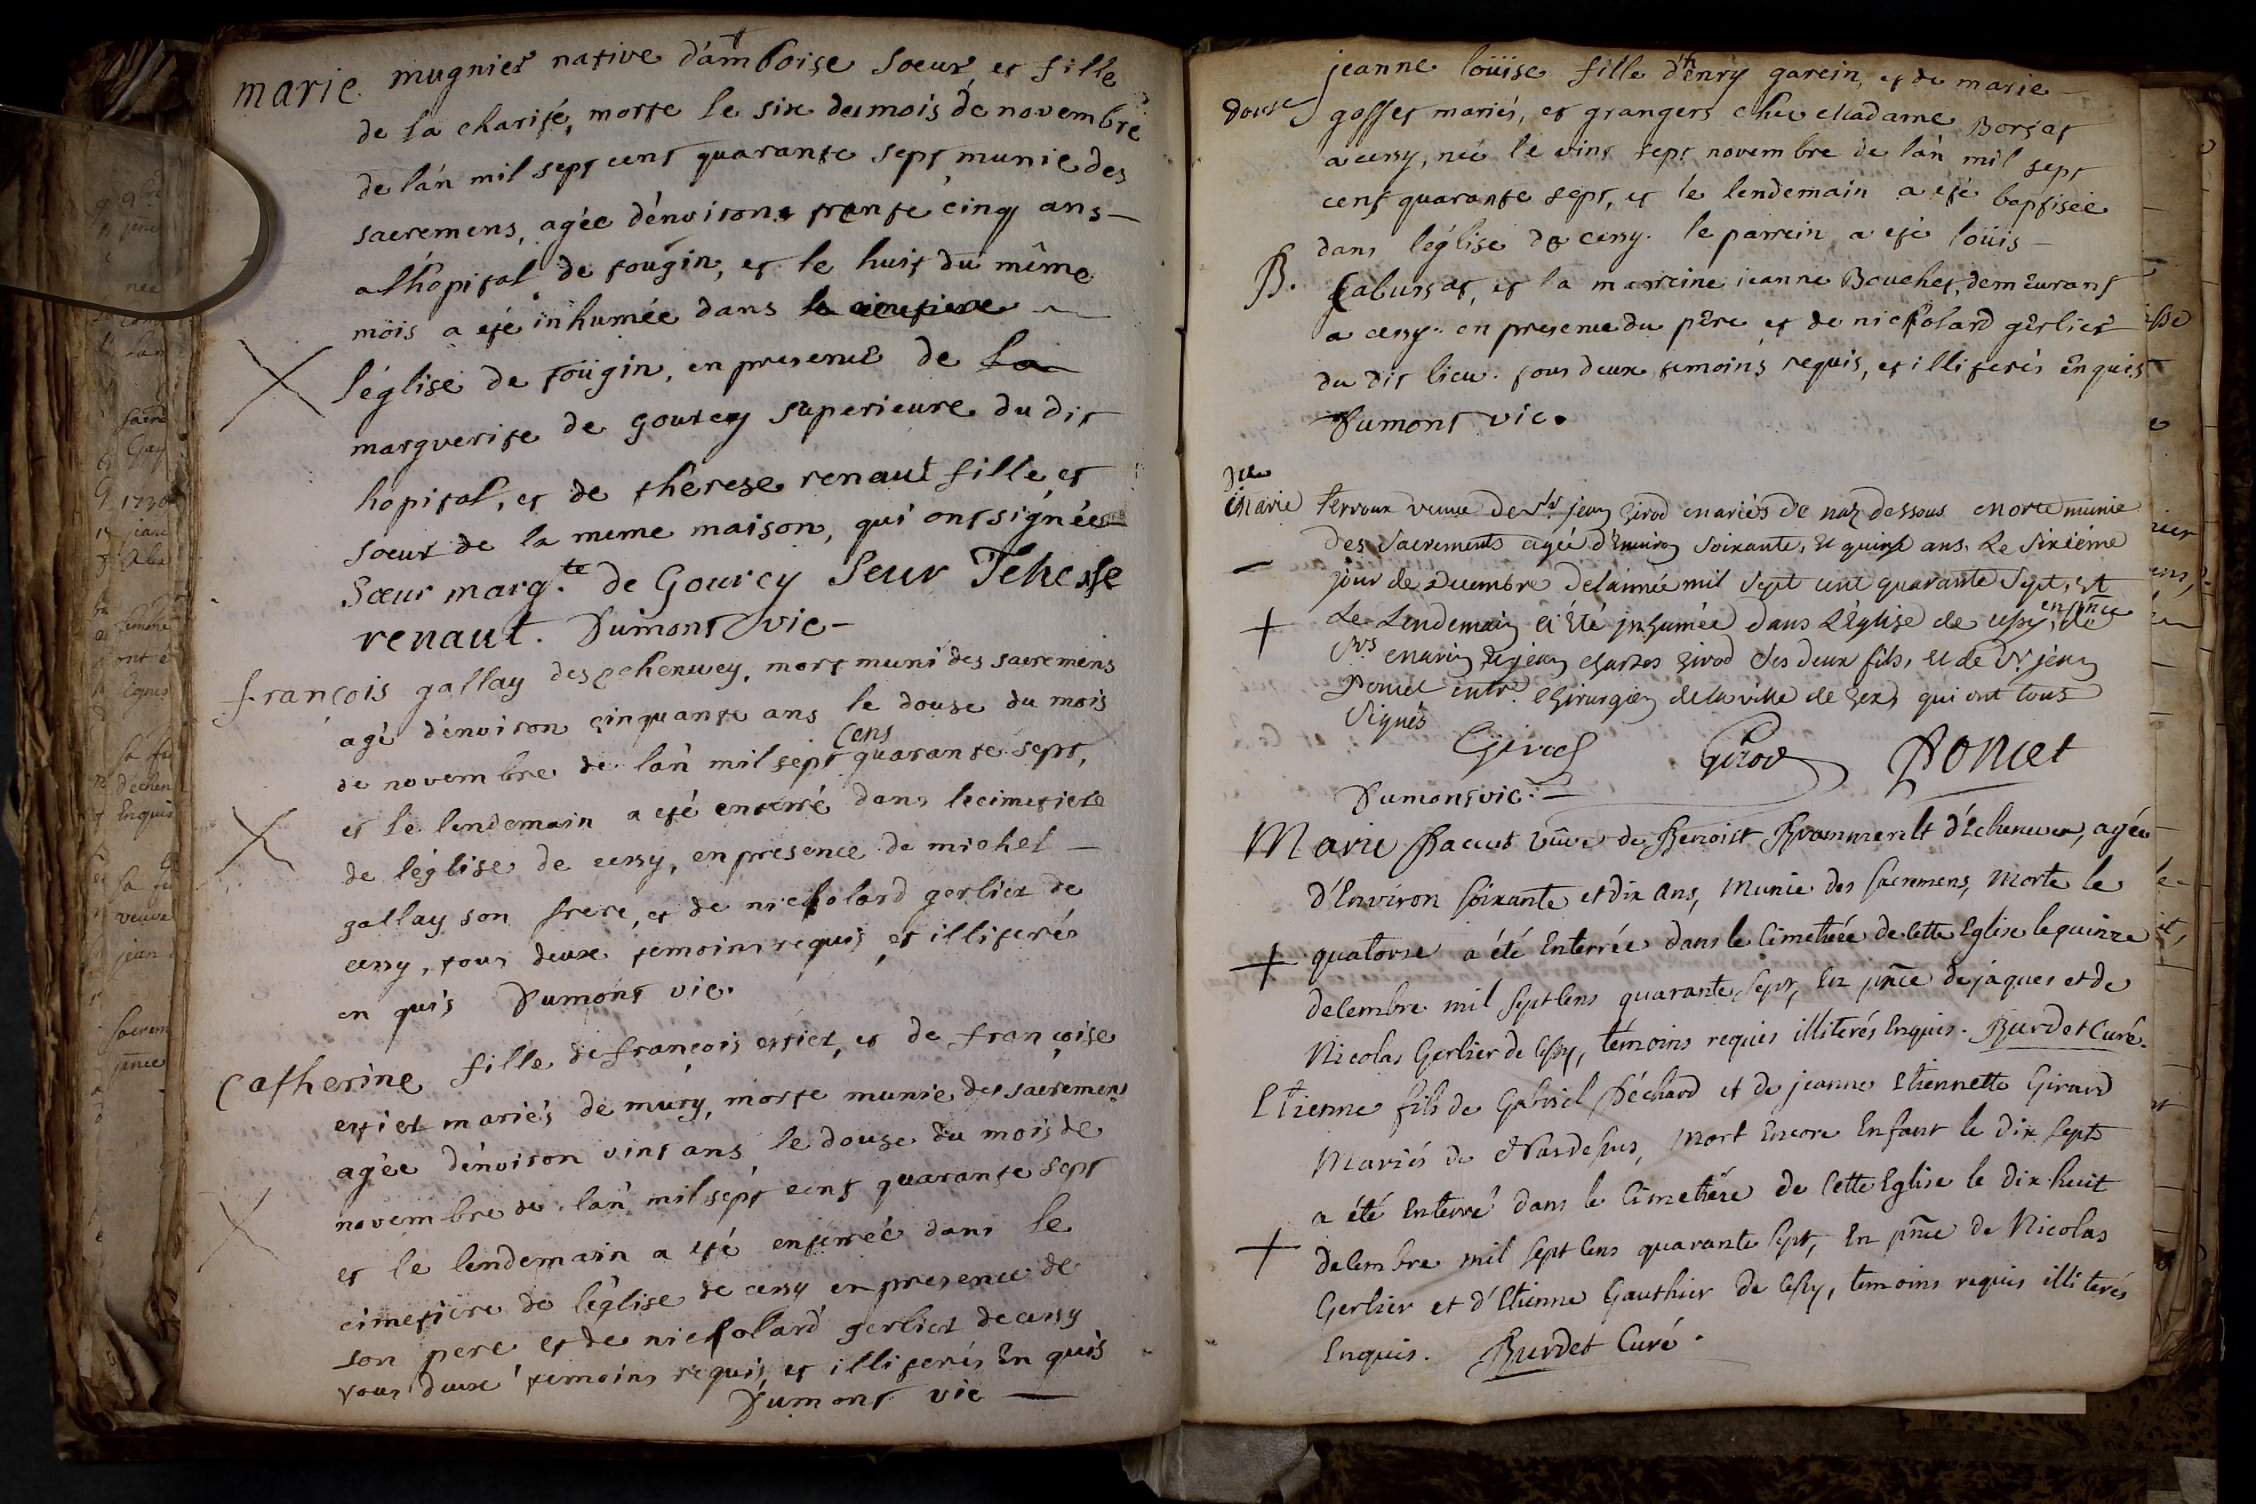 marie mugnier native d'amboise soeur, et fille
de la charité, morte le six du mois de novembre
de l'an mil sept cent quarante sept munie des
sacremens, agée d'environ trente cinq ans
a l'hopital de tougin, et le huit du même
mois a eté inhumée dans le cimetiere
l'église de toügin, en presence de la
marguerite de gourcy superieure du dit
hopital, et de therese renaut fille, et
soeur de la meme maison, qui ont signées
Sœur marg.te de Gourcy Seur Teherse
renaut. Dumont vic
françois gallay des echenevey, mort muni des sacremens
agé d'environ cinquante ans le douse du mois
de novembre de l'an mil sept cens quarante sept,
et le lendemain a eté enterré dans le cimetiere
de l'église de cessy, en presence de michel
gallay son frere, et de nicholard gerlier de
cessy, tous deux temoins requis, et illiterés
en quis Dumont vic.
Catherine fille de françois errier, et de françoise
errier mariés de mury, morte munie des sacremens
agée d'environ vint ans le douse du mois de
novembre de l'an mil sept cent quarante sept
et le lendemain a eté enterrée dans le
cimetiere de l'église de cessy en presence de
son pere et de nicholard gerlier de cessy
tous deux temoins requis, et illiterés En quis
Dumont vic
jeanne loüise fille d'henry garcin, et de marie
gosset mariés, et grangers chez Madame Borsat
a cessy, neé le vint sept novembre de l'an mil sept
cent quarante sept, et le lendemain a eté baptisée
dans l'église de cessy. le parrein a eté loüis
B. Cabussat, et la marreine jeanne Bouchet, demeurant
a cessy. en presence du père et de nicholard gerlier
du dit lieu. tous deux temoins requis, et illiterés Enquis
Dumont vic.
Marie terroux veuve de Sr. jean Girod mariés de naz dessous morte munie
des Sacrements agée d'Environ Soixante, Et quinse ans. Le Sixiéme
jour de Decembre de lannée mil Sept cent quarante Sept, Et
Le Lendemain a Eté jnhumée dans L'Eglise de cessy, en pnce de
Srs marin & jean charles Girod Ses deux fils, Et de Sr. jean
Poncet chirurgien de la ville de Gex, qui ont tous
Signés
Girod Girod Poncet
Dumont vic.
Marie Paccut vûve de Benoist d'Echenevex, agée
d'Environ soixante et dix ans, Munie des sacremens, Morte le
quatorse a été Enterrée dans le Cimetiére de cette Eglise le quinze
decembre mil sept Cens quarante, sept, En pnce de jâques et de
Nicolas Gerlier de Cessy, témoins requis illiterés Enquis. Burdet Curé.
Etienne fils de Gabriel Péchard et de jeanne Etiennette Giraud
Mariés de Nasdessus, Mort Encore Enfant le dix Sept
a été Enterré dans le Cimetiére de Cette Eglise le dix huit
decembre mil sept Cens quarante sept, En pnce de Nicolas
Gerlier et d'Etienne Gauthier de Cessy, témoins requis illiterés
Enquis. Burdet Curé.